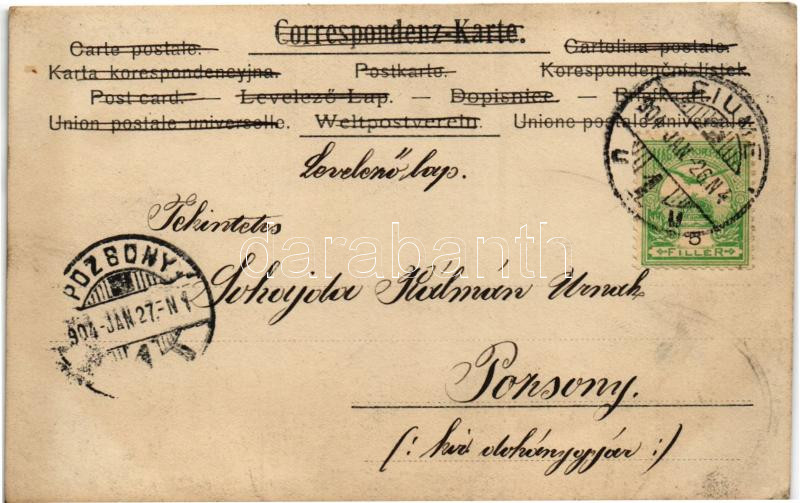 Correspondenz-Karte.
Carte postale. Cartolina postale.
Karta korespondencyjna. Postkarte. Korespondenční lístek.
Post card. — Levelező-Lap. — Dopisnice. — Briefkaart.
Union postale universelle. Weltpostverein. Unione postale universale.
FIUME
904 JAN 26 N 4
Levelező lap.
5
FILLER
Tekintetes
darabanth
POZSONY
904-JAN 27-N 1
Sohajda Kálmán Urnak
Pozsony.
(: kir dohánygyár :)